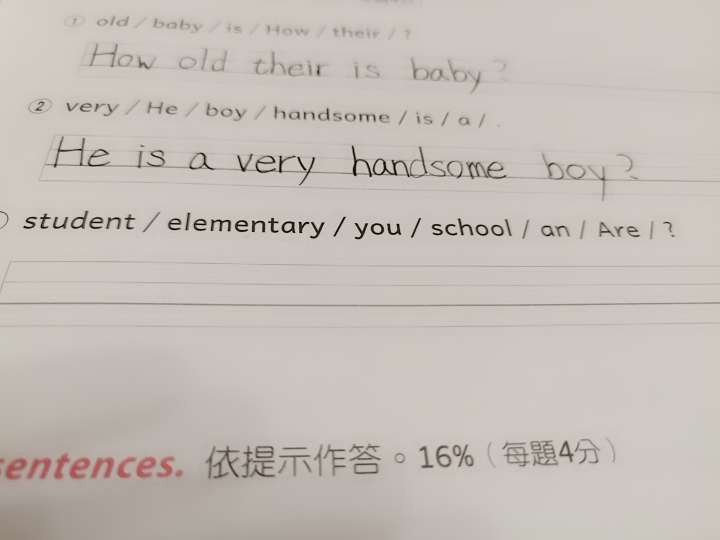 ① old / baby / is / How / their / ?
How old their is baby?
② very / He / boy / handsome / is / a / .
He is a very handsome boy?
student / elementary / you / school / an / Are / ?
sentences. 依提示作答。16%（每題4分）